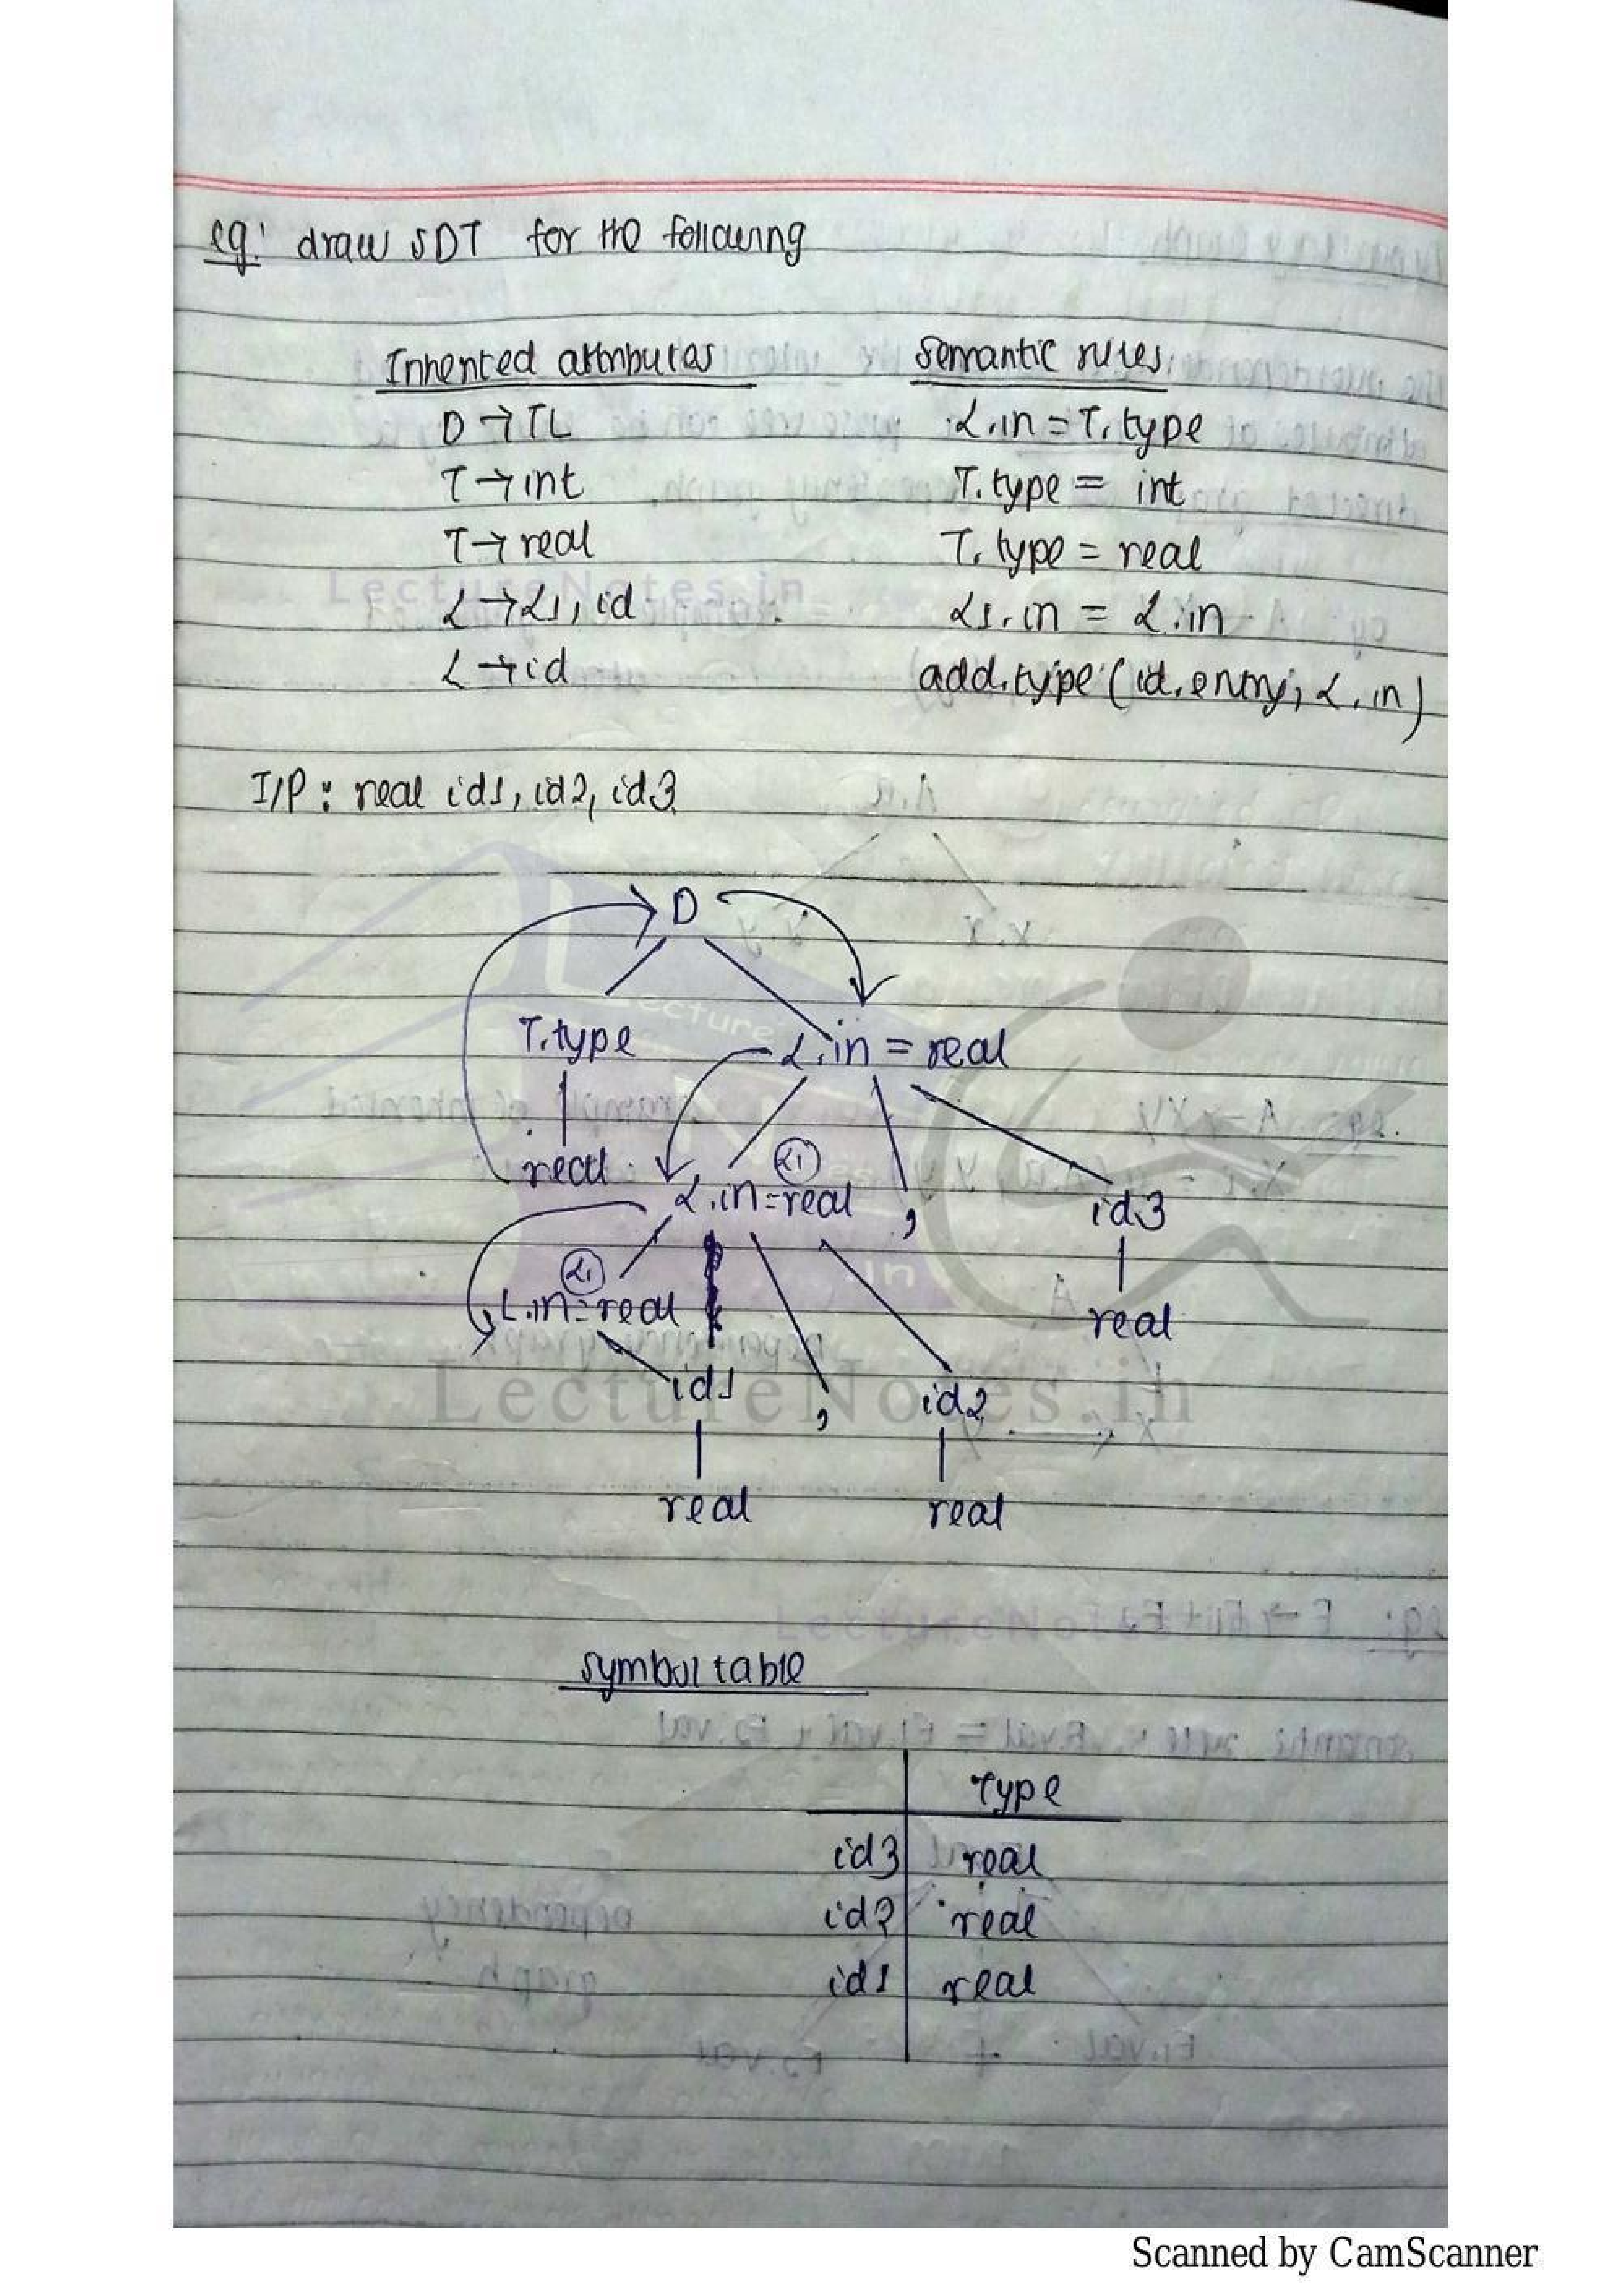 eg: draw SDT for the following
Inherited attributes Semantic rules
D → TL L.in = T.type
T → int T.type = int
T → real T.type = real
LectureNotes.in
L → L1, id L1.in = L.in
L → id add.type (id.entry, L.in)
I/P : real id1, id2, id3
D
T.type L.in = real
real L1
L.in = real , id3
L1
L.in = real real
id1 , id2
LectureNotes.in
real real
symbol table
Type
id3 real
id2 real
id1 real
Scanned by CamScanner